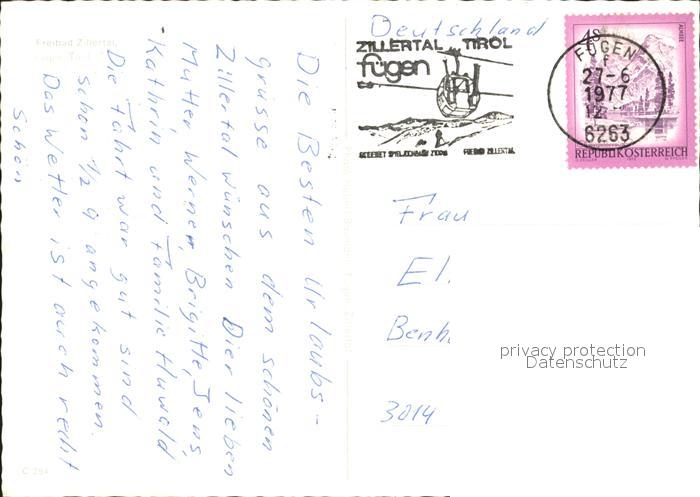 Freibad Zillertal,
Die Besten Urlaubs-
grüsse aus dem schönen
Zillertal wünschen Dier lieben
Mutter Werner, Brigitte, Jens,
Kathrin und Familie Huwald
Die Fahrt war gut sind
schon 1/2 9 angekommen.
Das Wetter ist auch recht
Schön
C 294
Deutschland
ZILLERTAL TIROL
fügen
FREIBAD ZILLERTAL
FÜGEN
f
27-6
1977
12
6263
4S
ALMSEE
REPUBLIK ÖSTERREICH
Frau
El.
Benh.
3014
privacy protection
Datenschutz